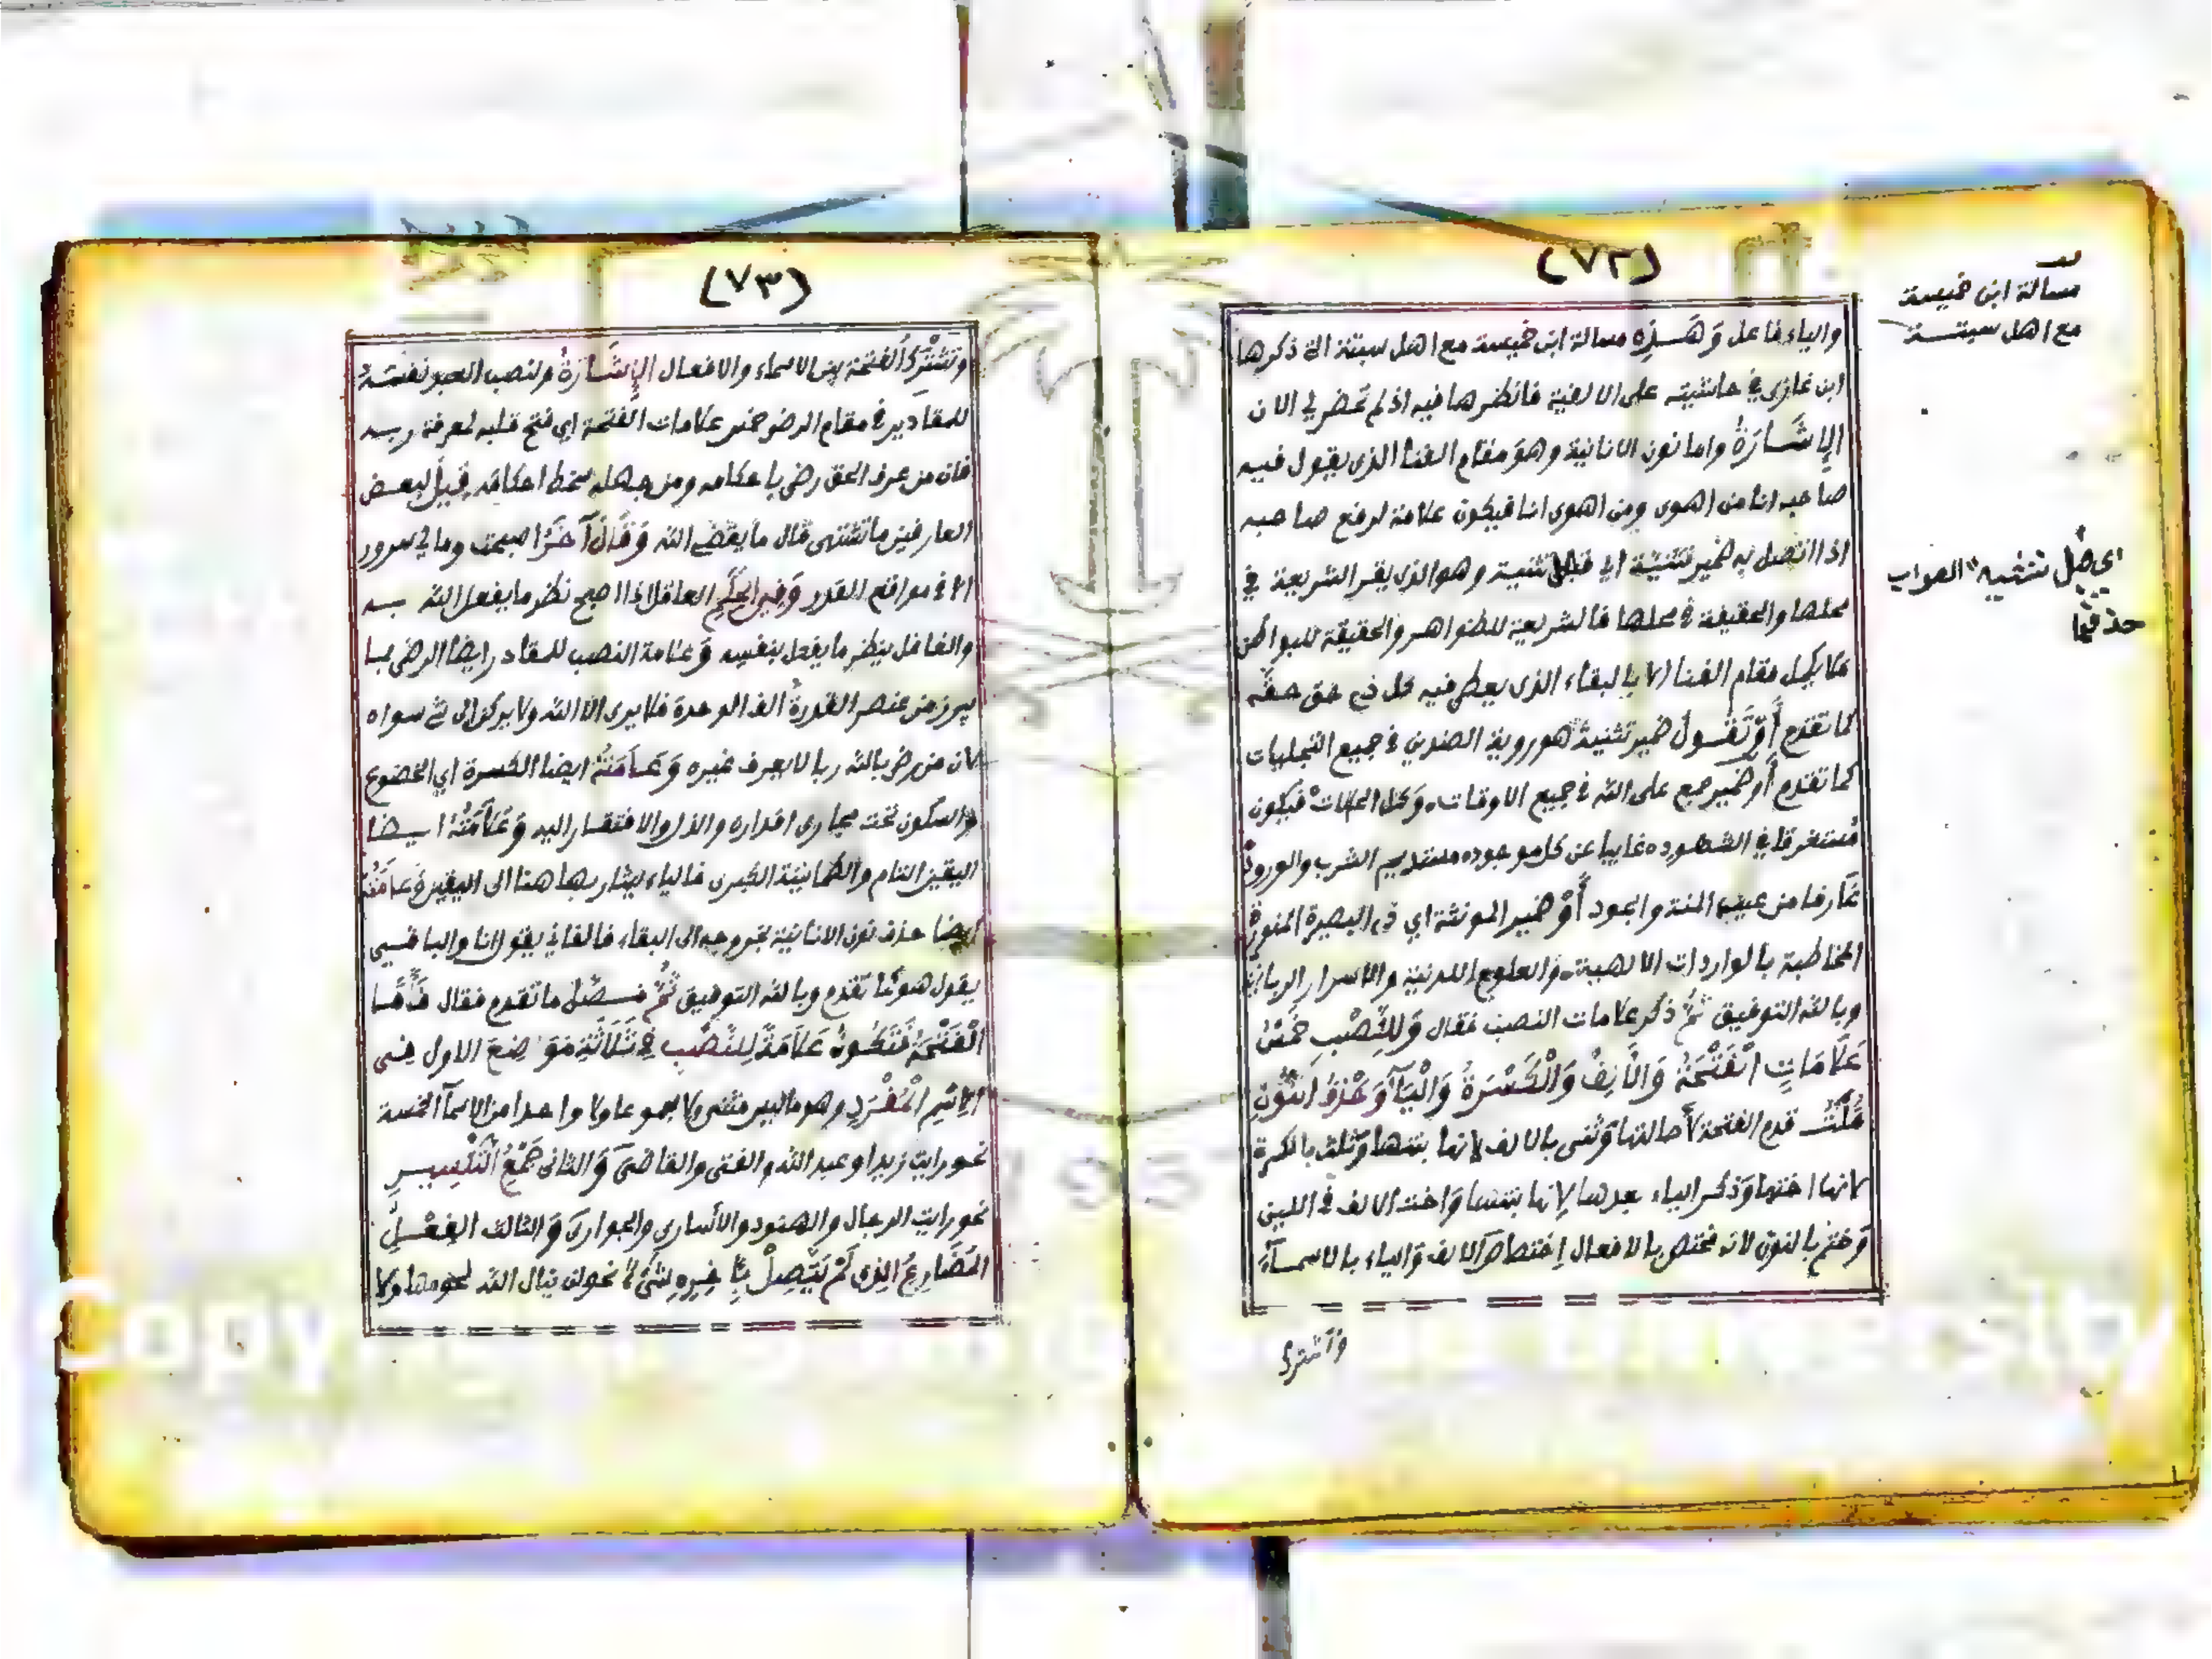 (٧٢)
مسألة ابن خميسة
مع اهل سبتة
والياء فاعل وَهَذِهِ مسالة ابن خميسة مع اهل سبتة التي ذكرها
ابن غازي في حاشيته على الالفية فانظرها فيه اذ لم تحضر لي الان
الإِشَارَةُ واما نون الانانية وهوَ مقام الفنا الذي يقول فيه
صاحبه انا من اهوى ومن اهوى انا فيكون علامة لرفع صاحبه
اذا اتصل به ضمير تثنية اي تثنية وهو الذي يقر الشريعة في
اي قبل تثنيه الصواب
حذفها
محلها والحقيقة في محلها فالشريعة للظواهر والحقيقة للبواطن
فلا يكمل مقام الفنا الا بالبقاء الذي يعطى فيه كل ذي حق حقه
كما تقدم أَوْ تَقُولُ ضمير تثنية هو روية الضدين في جميع التجليات
كما تقدم أو ضمير جمع على الله في جميع الاوقات وَكل الحالات فيكون
مستغرقا في الشهود غايبا عن كل موجود مستديم الشرب والورود
غارفا من عيب المنة والجود أَوْ ضمير المونثة اي ذي البصيرة المنورة
المخاطبة بالواردات الالهية والعلوم اللدنية والاسرار الربانية
وبالله التوفيق ثُمَّ ذكر علامات النصب فقال وَلِلنَّصْبِ خَمْسُ
عَلَامَاتٍ الْفَتْحَةُ وَالْأَلِفُ وَالْكَسْرَةُ وَالْيَآءُ وَحَذْفُ النُّونِ
قُلْتُ قدم الفتحة لأصالتها وَثنى بالالف لانها بنتها وَثلث بالكسرة
لانها اختها وَذكر الياء بعدها لانها بنتها وَاخت الالف في اللين
وَختم بالنون لانه مختص بالافعال اختصاص الالف وَالياء بالاسمآء
وتشترك
(٧٣)
وتَشْتَرِكُ الفتحة بين الاسماء والافعال الإِشَارَةُ ولنصب العبد نفسه
للمقادير في مقام الرضى خمس علامات الفتحة اي فتح قلبه لمعرفة ربه
فان من عرف الحق رضي باحكامه ومن جهله سخط احكامه قِيلَ لبعض
العارفين ما تشتهى قال ما يقضي الله وَقَالَ آخَرُ اصبحت وما لي سرور
الا في مواقع القدر وَفِي الحِكَمِ العاقل اذا اصبح نظر ما يفعل الله به
والغافل ينظر ما يفعل بنفسه وَعلامة النصب للمقادر ايضا الرضى بما
يبرز من عنصر القدرة الف الوحدة فلا يرى الا الله ولا يركن الى شئ سواه
لان من رضي بالله ربا لا يعرف غيره وَعَلَامَتُهُ ايضا الكسرة اي الخضوع
والسكون تحت مجاري اقداره والذل والافتقار اليه وَعَلَامَتُهُ ايضا
اليقين التام والطمانينة الكبرى فالياء يشار بها هنا الى اليقين وَعلامَتُهُ
ايضا حذف نون الانانية بخروجه الى البقاء فالفاني يقول انا والباقي
يقول هو كما تقدم وبالله التوفيق ثُمَّ فصّل ما تقدم فقال فَأَمَّا
الْفَتْحَةُ فَتَكُونُ عَلَامَةً لِلنَّصْبِ فِي ثَلَاثَةِ مَوَاضِعَ الاول في
الِاسْمِ الْمُفْرَدِ وهو ما ليس مثنى ولا مجموعا ولا واحدا من الاسمآ الخمسة
نحو رايت زيدا وعبد الله والفتى والقاضيَ وَالثاني جَمْعُ التَّكْسِيرِ
نحو رايت الرجال والهنود والأسارى والجوارىَ وَالثالث الفِعْلُ
المُضَارِعُ الذِي لَمْ يَتَّصِلْ بِآخِرِهِ شَيْءٌ نحو لن ينال الله لحومها ولا